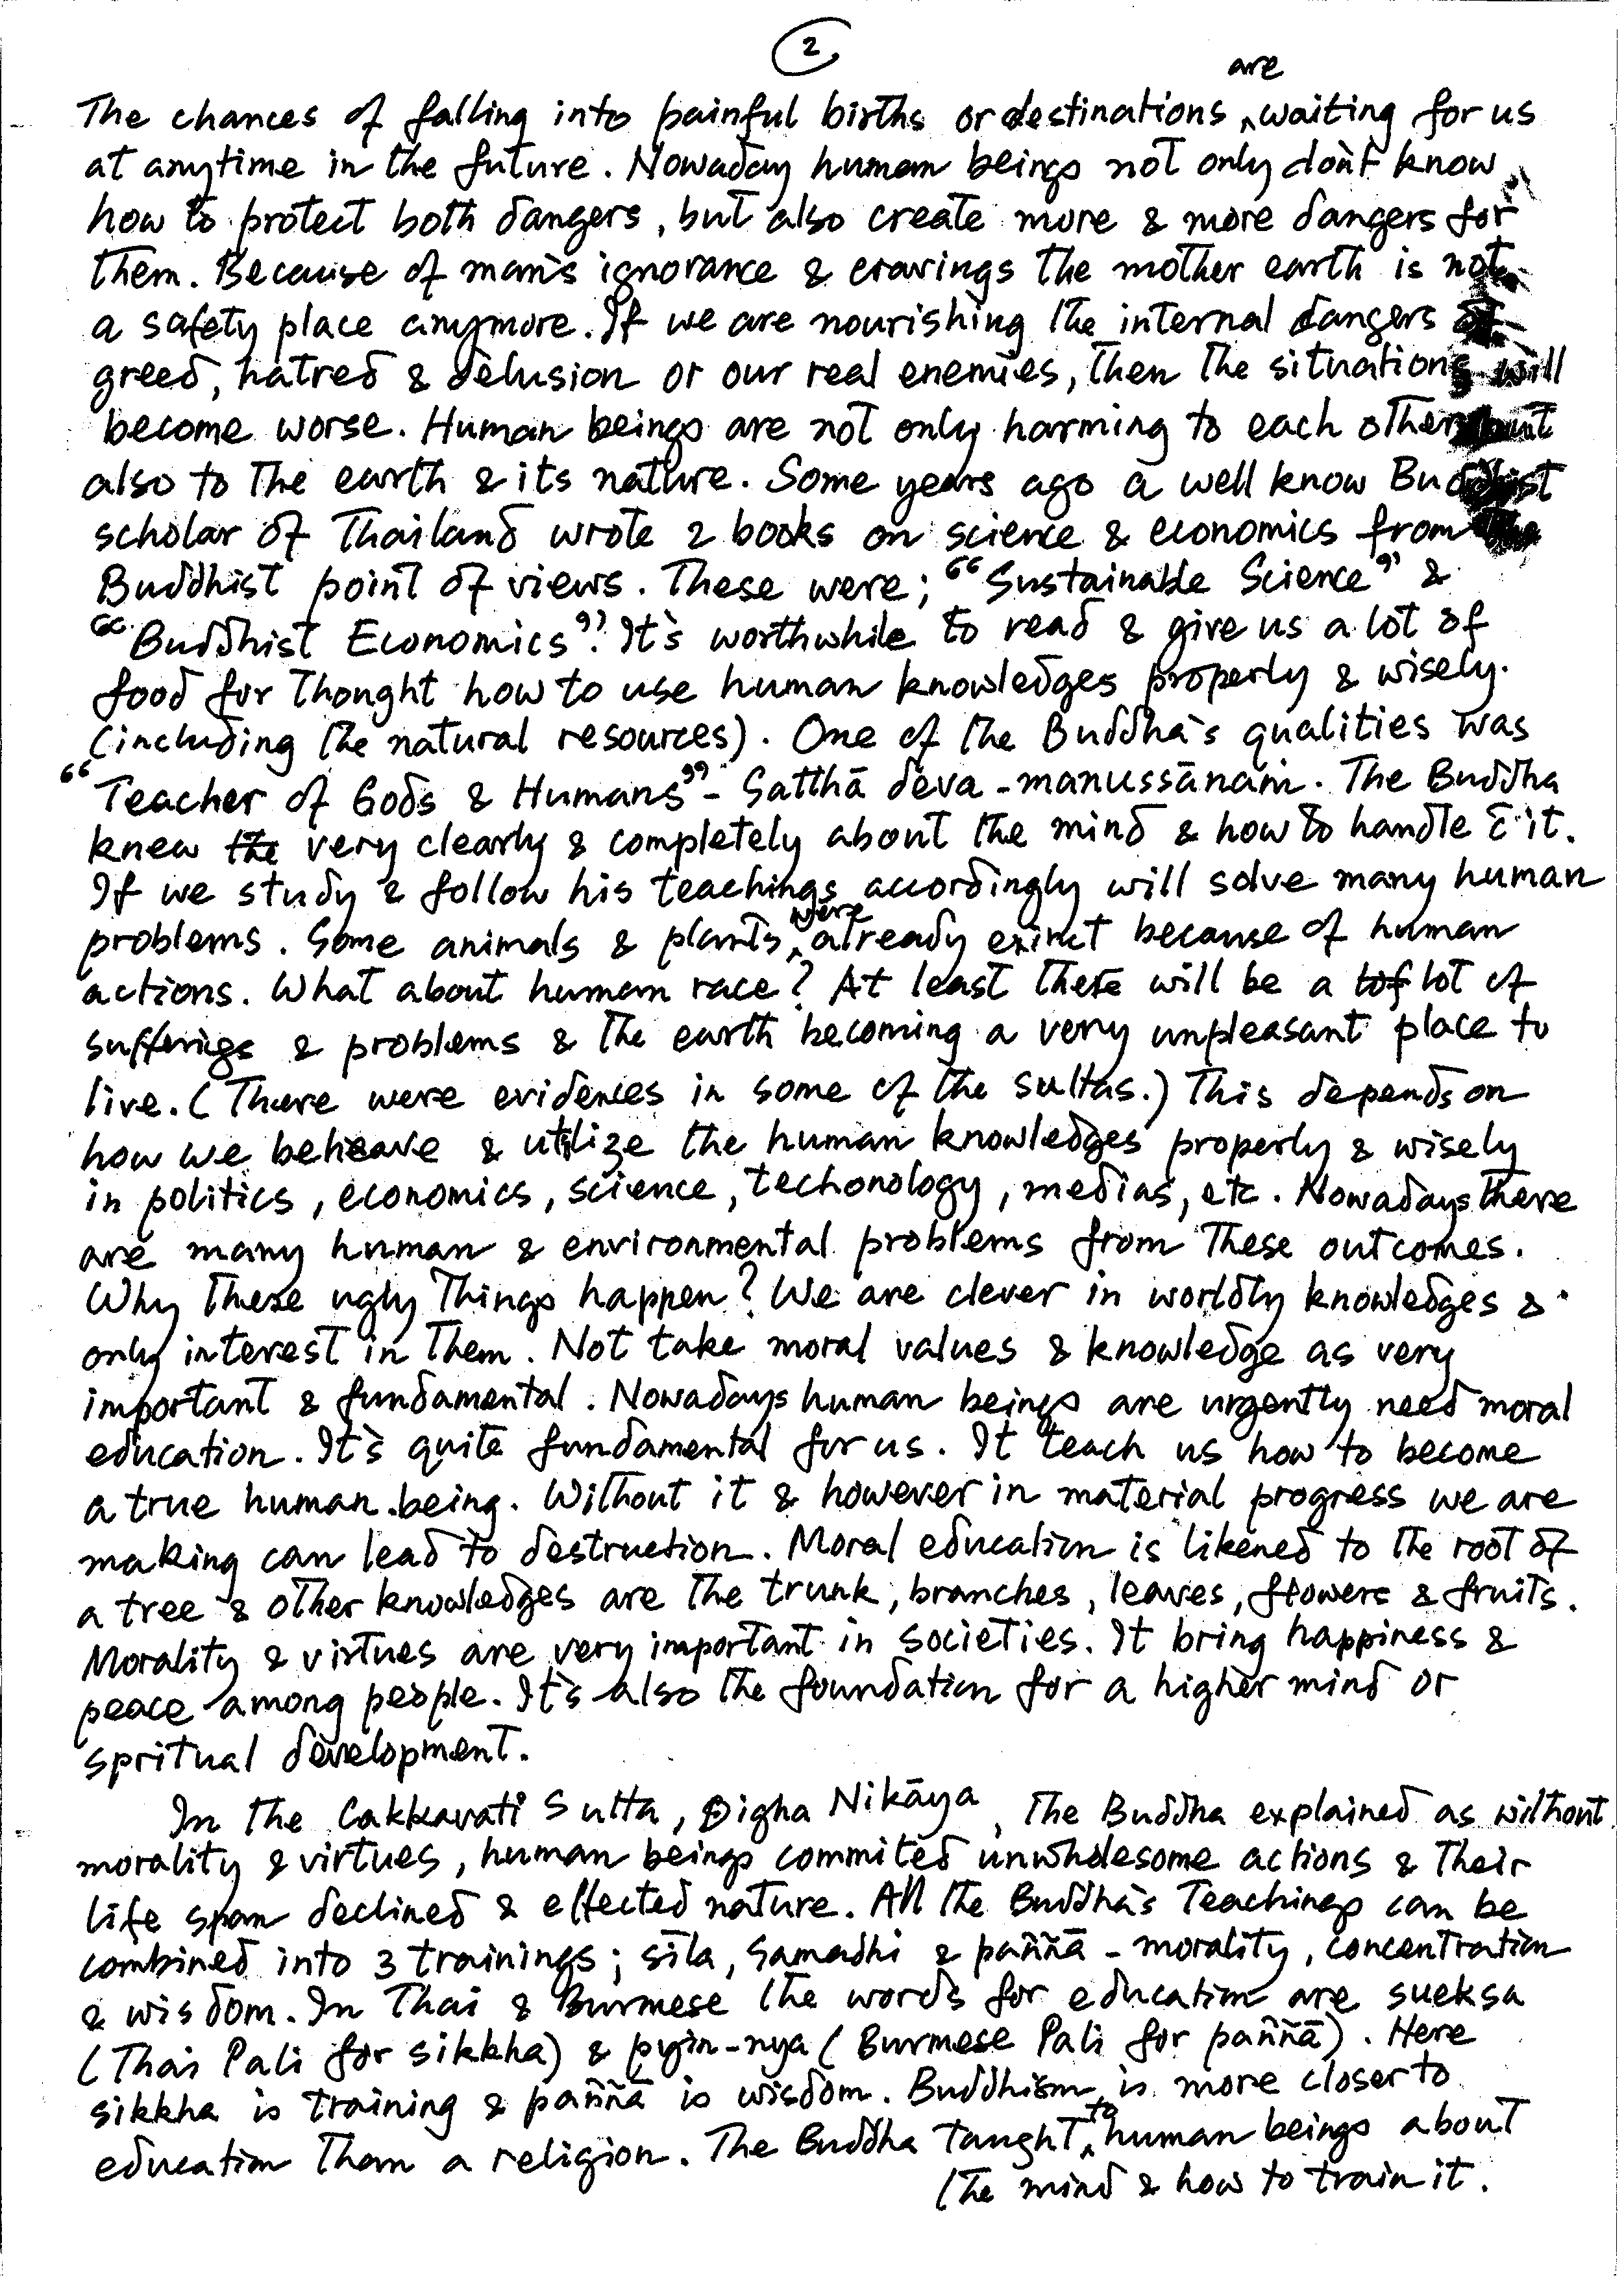 2
The chances of falling into painful births or destinations are waiting for us
at anytime in the future. Nowaday human beings not only don't know
how to protect both dangers, but also create more & more dangers for
them. Because of man's ignorance & cravings the mother earth is not
a safety place anymore. If we are nourishing the internal dangers of
greed, hatred & delusion or our real enemies, then the situations will
become worse. Human beings are not only harming to each other but
also to the earth & its nature. Some years ago a well know Buddhist
scholar of Thailand wrote 2 books on science & economics from the
Buddhist point of views. These were; “Sustainable Science” &
“Buddhist Economics”. It's worthwhile to read & give us a lot of
food for thought how to use human knowledges properly & wisely.
(including the natural resources). One of the Buddha's qualities was
“Teacher of Gods & Humans” - Satthā deva-manussānaṁ. The Buddha
knew the very clearly & completely about the mind & how to handle c̄ it.
If we study & follow his teachings accordingly will solve many human
problems. Some animals & plants were already exinct because of human
actions. What about human race? At least there will be a lot of
sufferings & problems & the earth becoming a very unpleasant place to
live. (There were evidences in some of the suttas.) This depends on
how we beheave & utilize the human knowledges properly & wisely
in politics, economics, science, techonology, medias, etc. Nowadays there
are many human & environmental problems from these outcomes.
Why these ugly things happen? We are clever in worldly knowledges &
only interest in them. Not take moral values & knowledge as very
important & fundamental. Nowadays human beings are urgently need moral
education. It's quite fundamental for us. It teach us how to become
a true human being. Without it & however in material progress we are
making can lead to destruction. Moral education is likened to the root of
a tree & other knowledges are the trunk, branches, leaves, flowers & fruits.
Morality & virtues are very important in societies. It bring happiness &
peace among people. It's also the foundation for a higher mind or
spritual development.
In the Cakkavati Sutta, Digha Nikāya, the Buddha explained as without
morality & virtues, human beings commited unwholesome actions & their
life span declined & effected nature. All the Buddha's Teachings can be
combined into 3 trainings; sīla, samadhi & paññā - morality, concentration
& wisdom. In Thai & Burmese the words for education are sueksa
(Thai Pali for sikkha) & pyin-nya (Burmese Pali for paññā). Here
sikkha is training & paññā is wisdom. Buddhism is more closer to
education than a religion. The Buddha taught to human beings about
the mind & how to train it.